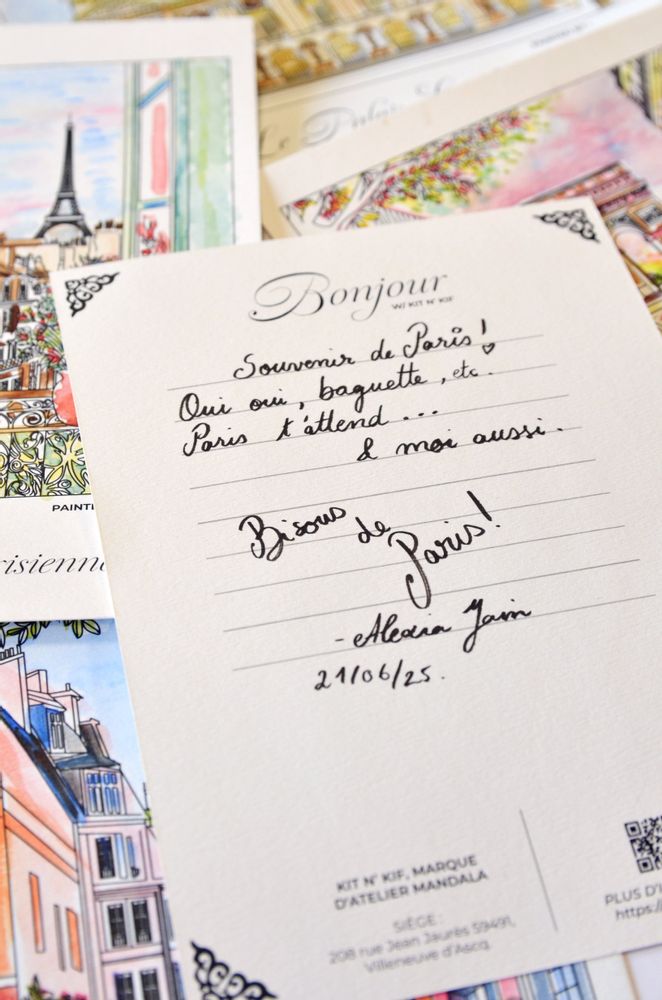 Le Palais
PAINTI
risienne
Bonjour
W/ KIT N' KIF
Souvenir de Paris!
Oui oui, baguette, etc.
Paris t'attend...
& moi aussi.
Bisous
de
Paris!
- Alexia Jain
21/06/25.
KIT N' KIF, MARQUE
D'ATELIER MANDALA
SIÈGE :
208 rue Jean Jaurès 59491,
Villeneuve d'Ascq
PLUS D'I
https://